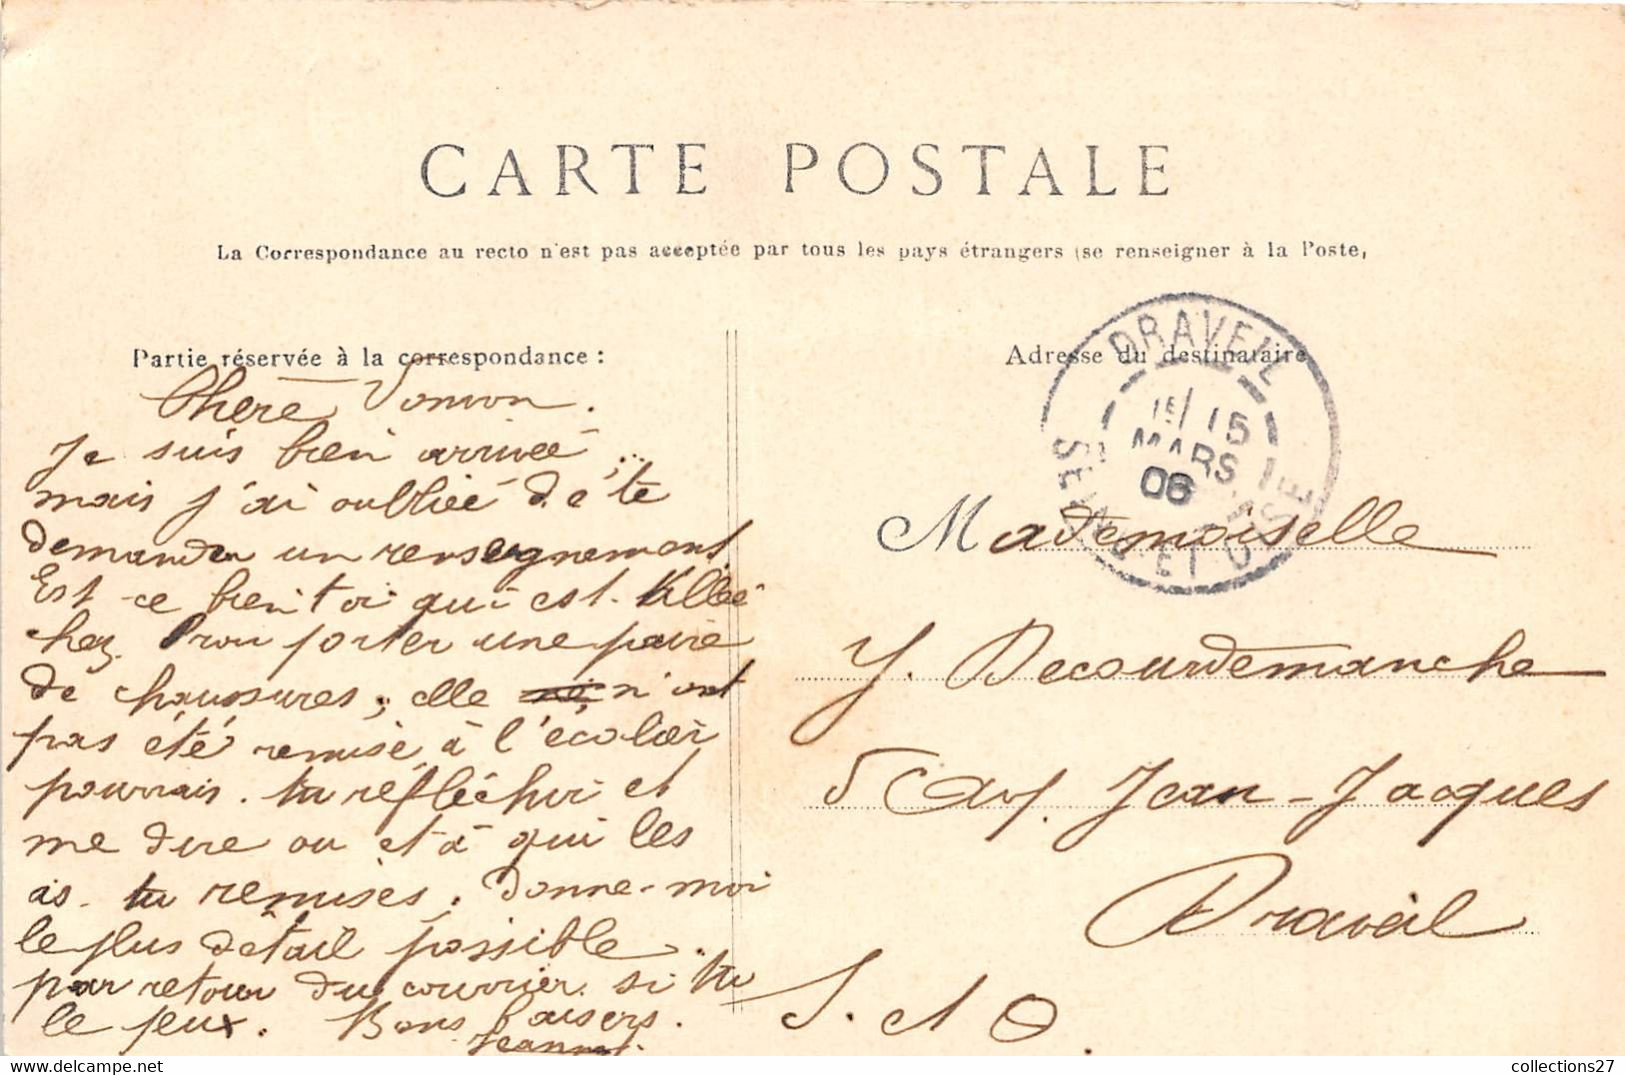 CARTE POSTALE
La Correspondance au recto n'est pas acceptée par tous les pays étrangers (se renseigner à la Poste,
Partie réservée à la correspondance :
Chère
Je suis bien arrivée
mais j'ai oubliée de te
demander un renseignement
Est-ce bien toi qui est allée
chez porter une paire
de chaussures; elle n'ont
pas été remise à l'école
pourrais tu réfléchir et
me dire ou et à qui les
as-tu remises. Donne-moi
le plus détail possible
par retour du courrier. si tu
le peux. Bons baisers.
Adresse du destinataire
DRAVEIL
1E/ 15
MARS
06
SEINE ET OISE
Mademoiselle
J. Decourdemanche
5 Jean-Jacques
Draveil
S. et O.
collections27